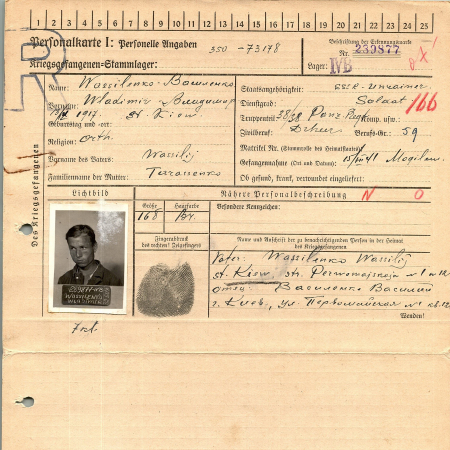 1 2 3 4 5 6 7 8 9 10 11 12 13 14 15 16 17 18 19 20 21 22 23 24 25
Personalkarte I: Personelle Angaben
350 -73178
Beschriftung der Erkennungsmarke
Nr. 239877
Kriegsgefangenen-Stammlager:
Lager: IVB
Des Kriegsgefangenen
Name: Wassilenko-Василенко
Vorname: Wladimir Владимир
Geburtstag und -ort: 1917. st. Kiew
Religion: Orth.
Vorname des Vaters: Wassilij
Familienname der Mutter: Tarassenko
Staatsangehörigkeit: SSSR-Ukrainer
Dienstgrad: Soldat
166
Truppenteil: 38/38 Panz. Regt. Komp. usw.:
Zivilberuf: Berufs-Gr.: 59
Matrikel Nr. (Stammrolle des Heimatstaates):
Gefangennahme (Ort und Datum): 15/VII 41 Mogilew
Ob gesund, krank, verwundet eingeliefert:
Lichtbild
Nähere Personalbeschreibung
N O
Größe
Haarfarbe
168
Br.
Besondere Kennzeichen:
Fingerabdruck
des rechten! Zeigefingers
Name und Anschrift der zu benachrichtigenden Person in der Heimat
des Kriegsgefangenen
Vater: Wassilenko Wassilij
st. Kiew, str. Perwomajskaja № 1 кв 12
отец: Василенко Василий
г. Киев, ул. Первомайская № 1 кв. 12.
Wenden!
WASSILENKO
WLADIMIR